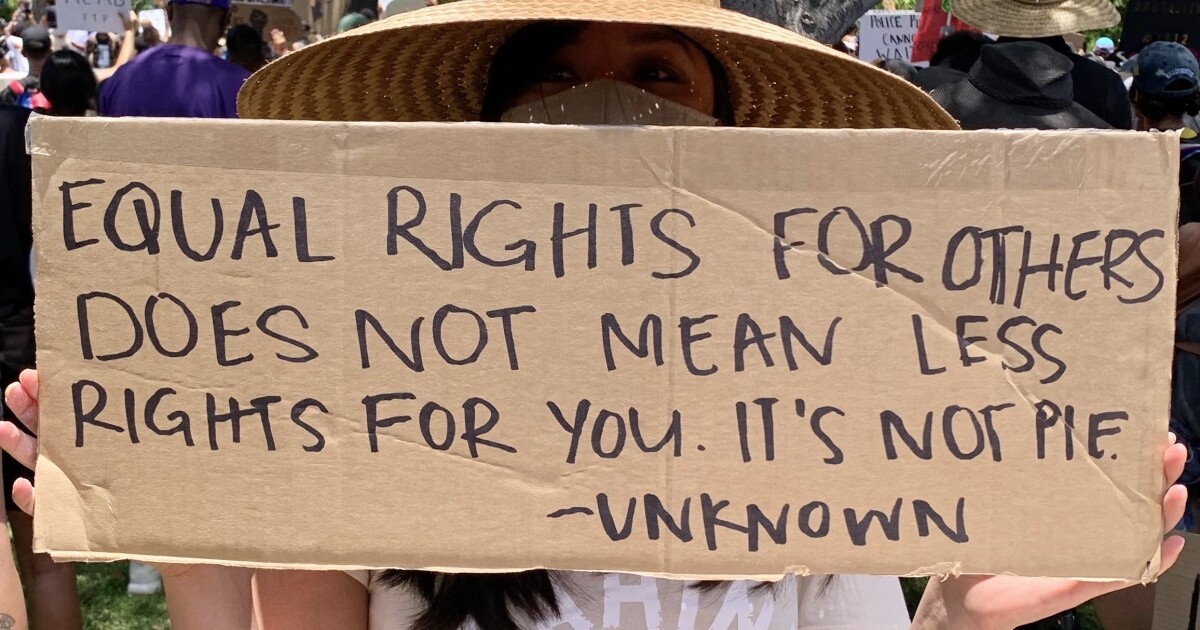 ACAB
FTP
POLICE
CANNO
WAI
EQUAL RIGHTS FOR OTHERS
DOES NOT MEAN LESS
RIGHTS FOR YOU. IT'S NOT PIE.
-UNKNOWN